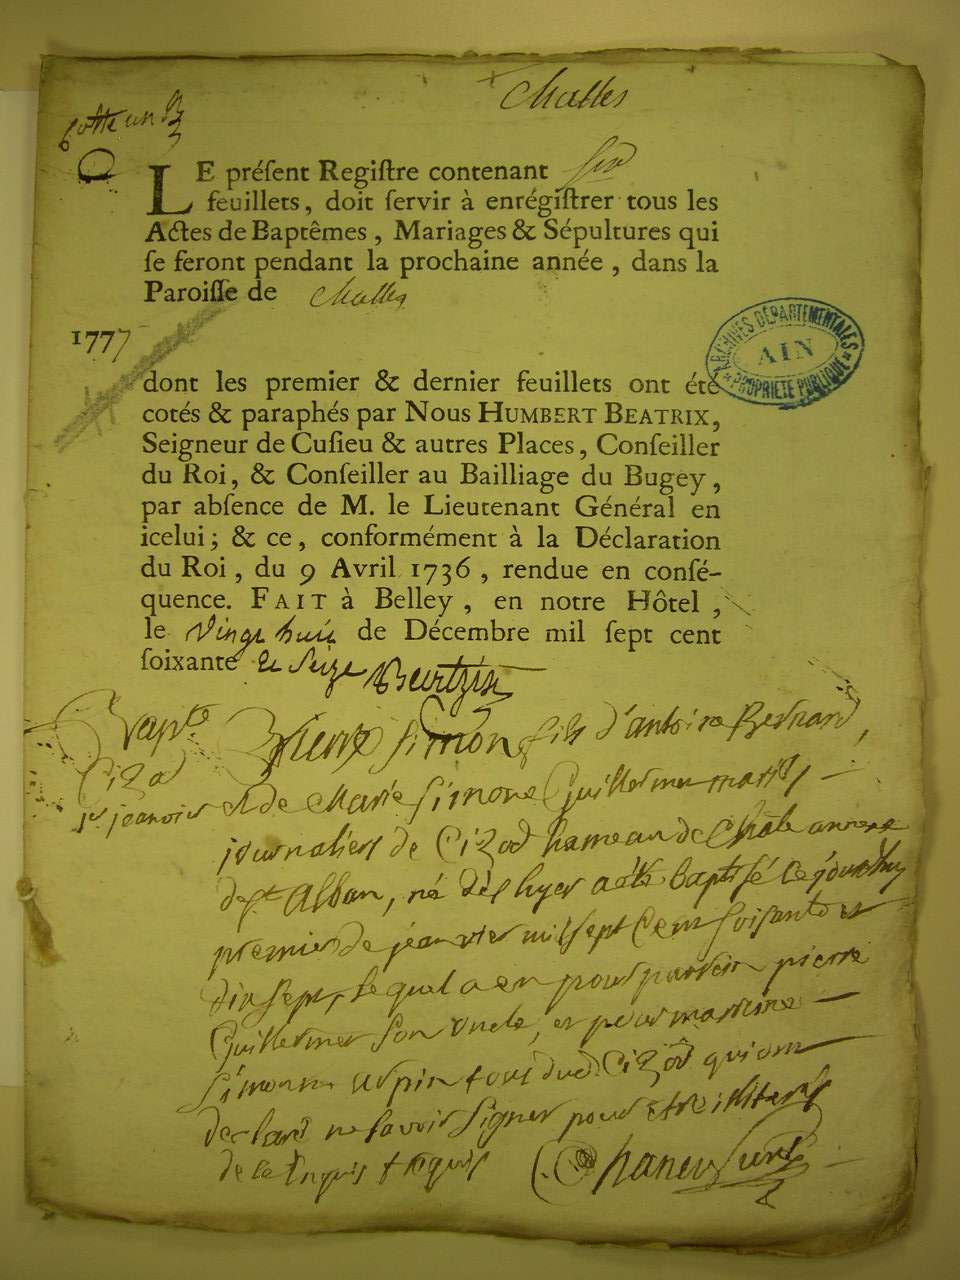 Challes
Cotté un
LE préſent Regiſtre contenant six
feuillets, doit ſervir à enrégiſtrer tous les
Actes de Baptêmes, Mariages & Sépultures qui
ſe feront pendant la prochaine année, dans la
Paroiſſe de Challes
1777
dont les premier & dernier feuillets ont été
cotés & paraphés par Nous HUMBERT BEATRIX,
Seigneur de Cuſieu & autres Places, Conſeiller
du Roi, & Conſeiller au Bailliage du Bugey,
par abſence de M. le Lieutenant Général en
icelui; & ce, conformément à la Déclaration
du Roi, du 9 Avril 1736, rendue en conſé-
quence. FAIT à Belley, en notre Hôtel,
le Vingt huit de Décembre mil ſept cent
ſoixante et Seize
ARCHIVES DÉPARTEMENTALES
AIN
PROPRIÉTÉ PUBLIQUE
Bapte
Cizod
1er jeanvier
Pierre Simon fils d'antoine Bernard,
et de Marie Simone Guillermer mariés
journaliers de Cizod hameau de Chale annexe
de St Alban, né dès hyer a été baptisé ce jourdhuy
premier de jeanvier mil sept cent soisante et
dix sept, lequel a eu pour parrein pierre
Guillermer son oncle, et pour marrine
Simonne urpin tous dud Cizod qui ont
declaré ne savoir signer pour etre illiterés
de ce enquis et requis Chaneu Curé